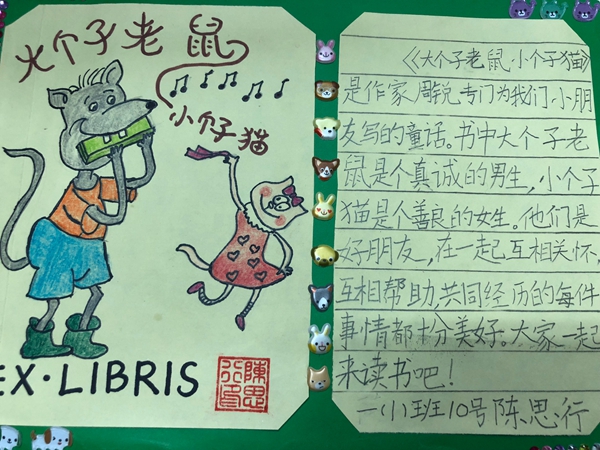 大个子老鼠
小个子猫
EX·LIBRIS
陳思
行印
《大个子老鼠小个子猫》
是作家周锐专门为我们小朋
友写的童话。书中大个子老
鼠是个真诚的男生,小个子
猫是个善良的女生。他们是
好朋友,在一起互相关怀,
互相帮助,共同经历的每件
事情都扮美好。大家一起
来读书吧!
一(1)班10号陈思行